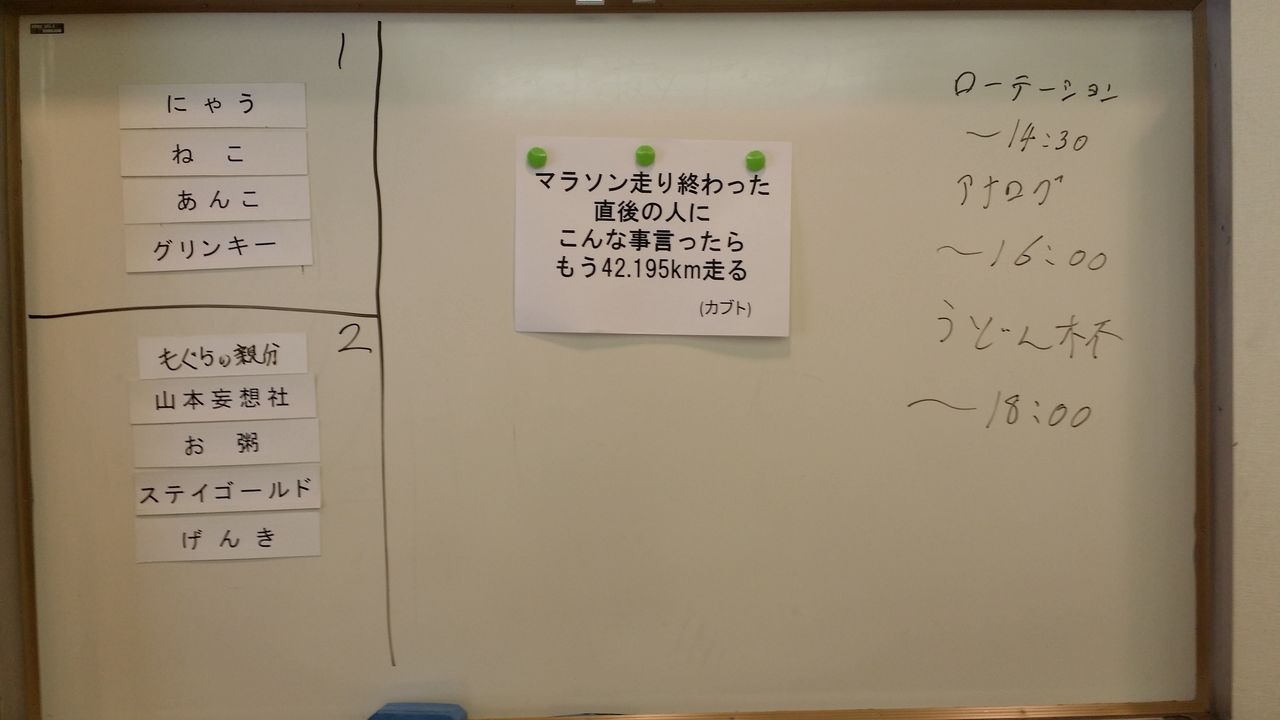 1
にゃう
ねこ
あんこ
グリンキー
2
もぐらの親分
山本妄想社
お粥
ステイゴールド
げんき
マラソン走り終わった
直後の人に
こんな事言ったら
もう42.195km走る
(カブト)
ローテーション
～14:30
アナログ
～16:00
うどん杯
～18:00